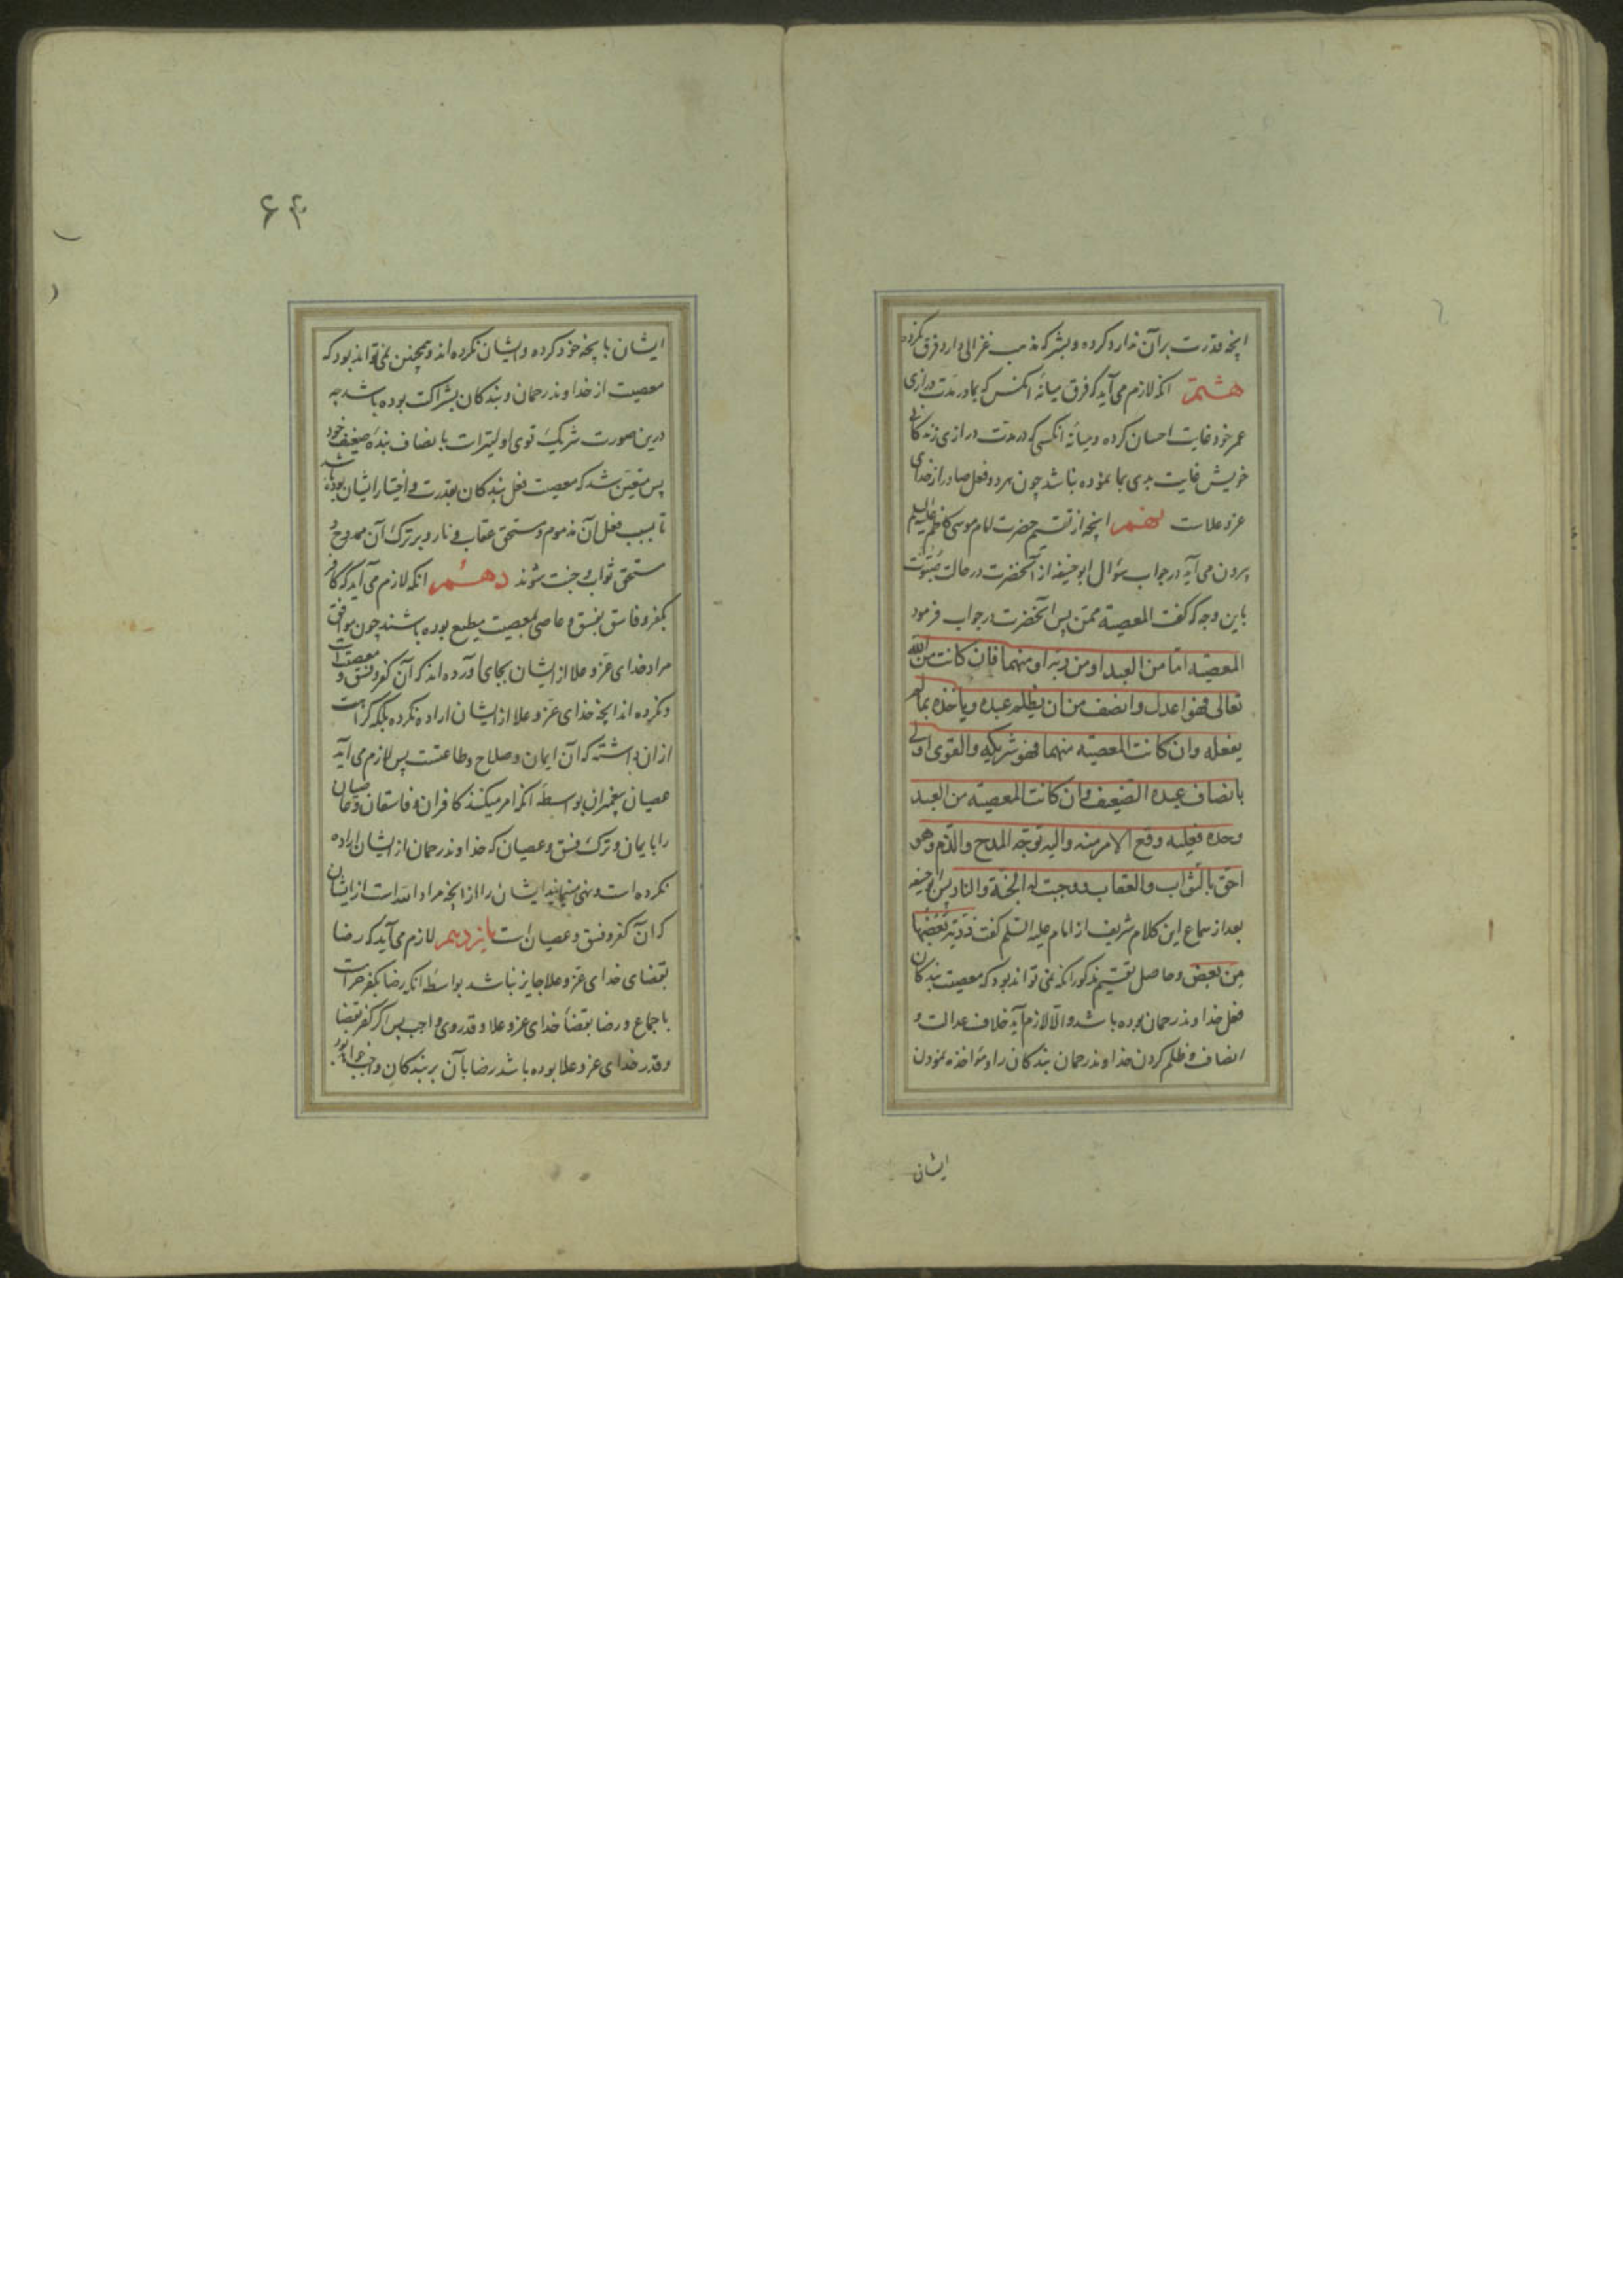 انچه قدرت بر آن ندارد کرده و بشر که مذهب غزالی دارد فرق نکرده
هشتم انکه لازم می آید که فرق میانهٔ انکس که بما در مدت درازی
عمر خود غایت احسان کرده و میانهٔ انکسی که در مدت درازی زندکانی
خویش غایت بدی بما نموده نباشد چون هر دو فعل صادر از خدای
عز و علاست نهم انچه از تقسیم حضرت امام موسی کاظم علیه السلم
بیرون می آید در جواب سؤال ابو حنیفه از آنحضرت در حالت صبوت
باین وجه که کفت المعصیة ممن پس آنحضرت در جواب فرمود
المعصیة اما من العبد او من ربه او منهما فان کانت من الله
تعالی فهو اعدل و انصف من ان یظلم عبده و یاخذه بما لم
یفعله وان کانت المعصیة منهما فهو شریکه والقوی اولی
بانصاف عبده الضعیف وان کانت المعصیة من العبد
وحده فعلیه وقع الامر منه والیه توجه المدح والذم وهو
احق بالثواب والعقاب ووجبت له الجنة والنار پس ابو حنیفه
بعد از سماع این کلام شریف از امام علیه السلم کفت ذریة بعضها
من بعض و حاصل تقسیم مذکور انکه نمی تواند بود که معصیت بندکان
فعل خداوند رحمان بوده باشد والا لازم آید خلاف عدالت و
انصاف و ظلم کردن خداوند رحمان بندکان را و مؤاخذه نمودن
ایشان
۶۴
ایشان بانچه خود کرده و ایشان نکرده اند و همچنین نمی تواند بود که
معصیت از خداوند رحمان و بندکان بشراکت بوده باشد چه
درین صورت شریک قوی اولیتر است بانصاف بندهٔ ضعیف خود
پس متعین شد که معصیت فعل بندکان بقدرت و اختیار ایشان بوده باشد
تا بسبب فعل آن مذموم و مستحق عقاب و نار و بر ترک آن ممدوح و
مستحق ثواب و جنت شوند دهم انکه لازم می آید که کافر
بکفر و فاسق بفسق و عاصی بمعصیت مطیع بوده باشند چون موافق
مراد خدای عز و علا از ایشان بجای آورده اند که آن کفر و فسق و معصیتست
و نکرده اند انچه خدای عز و علا از ایشان اراده نکرده بلکه کراهت
از ان داشته که آن ایمان و صلاح و طاعتست پس لازم می آید
عصیان پیغمبران بواسطهٔ انکه امر میکنند کافران و فاسقان و عاصیان
را بایمان و ترک فسق و عصیان که خداوند رحمان از ایشان اراده
نکرده است و نهی مینمایند ایشان را از انچه مراد الله است از ایشان
که آن کفر و فسق و عصیان است یازدهم لازم می آید که رضا
بقضای خدای عز و علا جایز نباشد بواسطه انکه رضا بکفر حرامست
باجماع و رضا بقضاء خدای عز و علا و قدر وی واجب پس اکر کفر بقضا
و قدر خدای عز و علا بوده باشد رضا بآن بر بندکان واجب خواهد بود